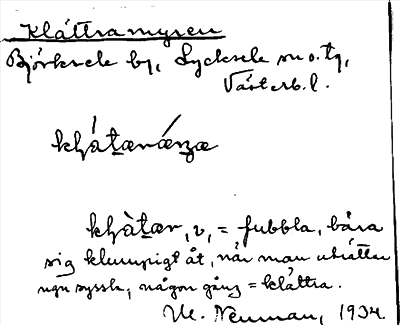 Klättramyren
Björksele by, Lycksele sn o. tg,
Västerb. l.
kḷátaræ̀nzæ
kḷàtær, v, = fubbla, bära
sig klumpigt åt, när man uträttar
ngn syssla; någon gång = klättra.
M. Neuman, 1934.